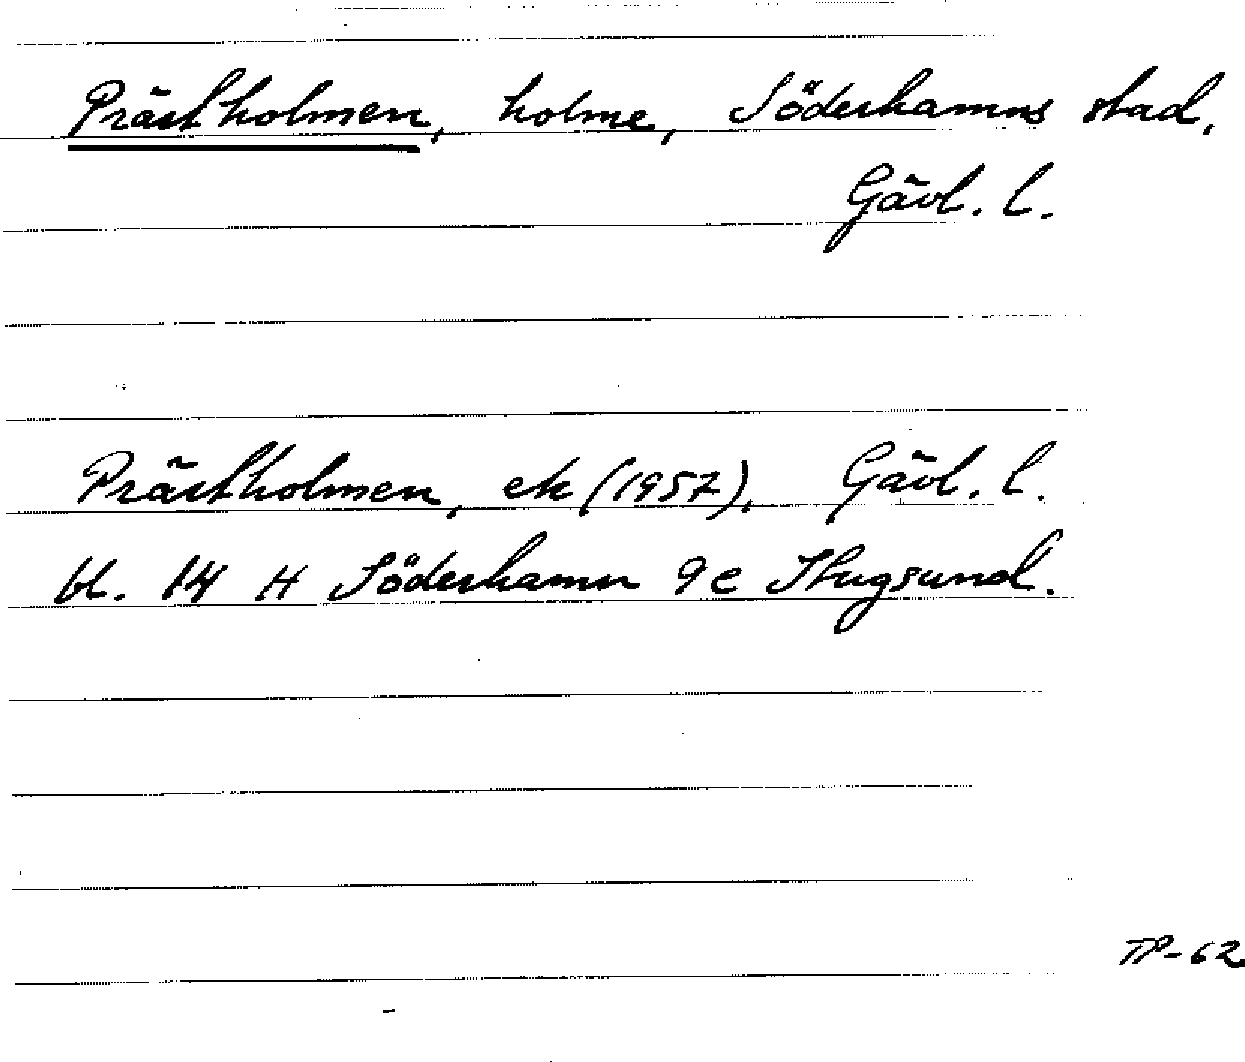 Prästholmen, holme, Söderhamns stad,
Gävl. l.
Prästholmen, ek (1957), Gävl. l.
bl. 14 H Söderhamn 9 c Skugsund.
TP-62